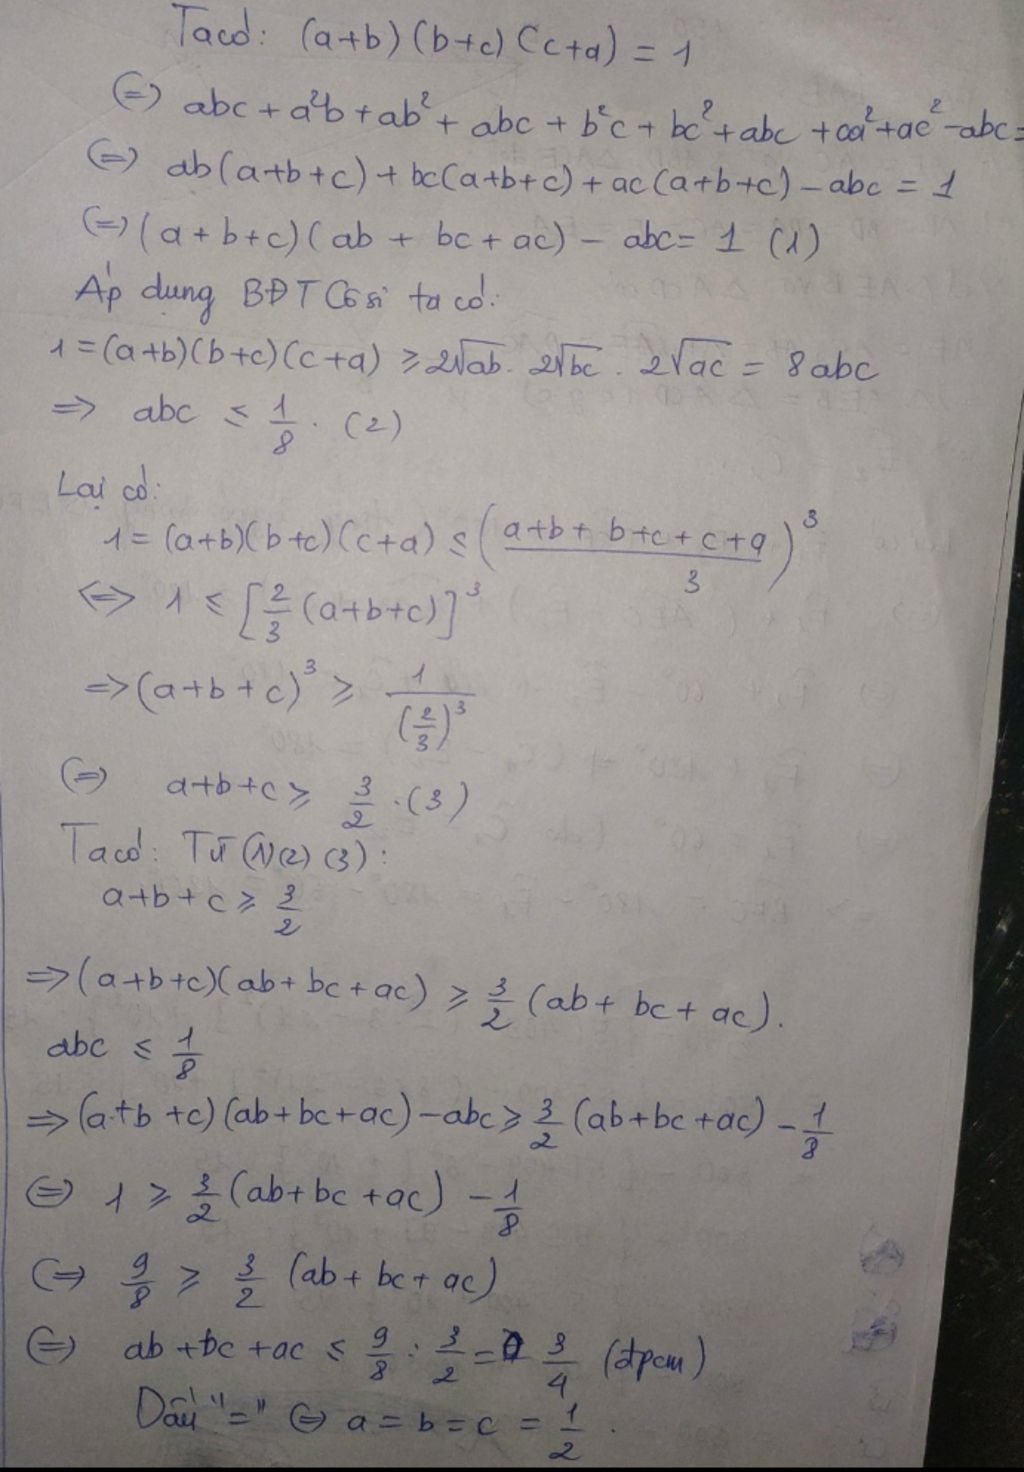 Ta có: (a+b)(b+c)(c+a) = 1
(=) abc + a²b + ab² + abc + b²c + bc² + abc + ca² + ac² - abc =
(=) ab(a+b+c) + bc(a+b+c) + ac(a+b+c) - abc = 1
(=) (a+b+c)(ab + bc + ac) - abc = 1 (1)
Áp dụng BĐT Cô si ta có:
1 = (a+b)(b+c)(c+a) ≥ 2√ab . 2√bc . 2√ac = 8abc
=> abc ≤ 1/8 . (2)
Lại có:
1 = (a+b)(b+c)(c+a) ≤ ((a+b+b+c+c+a)/3)³
<=> 1 ≤ [2/3 (a+b+c)]³
=> (a+b+c)³ ≥ 1/(2/3)³
(=) a+b+c ≥ 3/2 . (3)
Ta có: Từ (1)(2)(3):
a+b+c ≥ 3/2
=> (a+b+c)(ab+bc+ac) ≥ 3/2 (ab+bc+ac).
abc ≤ 1/8
=> (a+b+c)(ab+bc+ac) - abc ≥ 3/2 (ab+bc+ac) - 1/8
(=) 1 ≥ 3/2 (ab+bc+ac) - 1/8
(=) 9/8 ≥ 3/2 (ab+bc+ac)
(=) ab+bc+ac ≤ 9/8 : 3/2 = 3/4 (đpcm)
Dấu "=" (=) a = b = c = 1/2 .